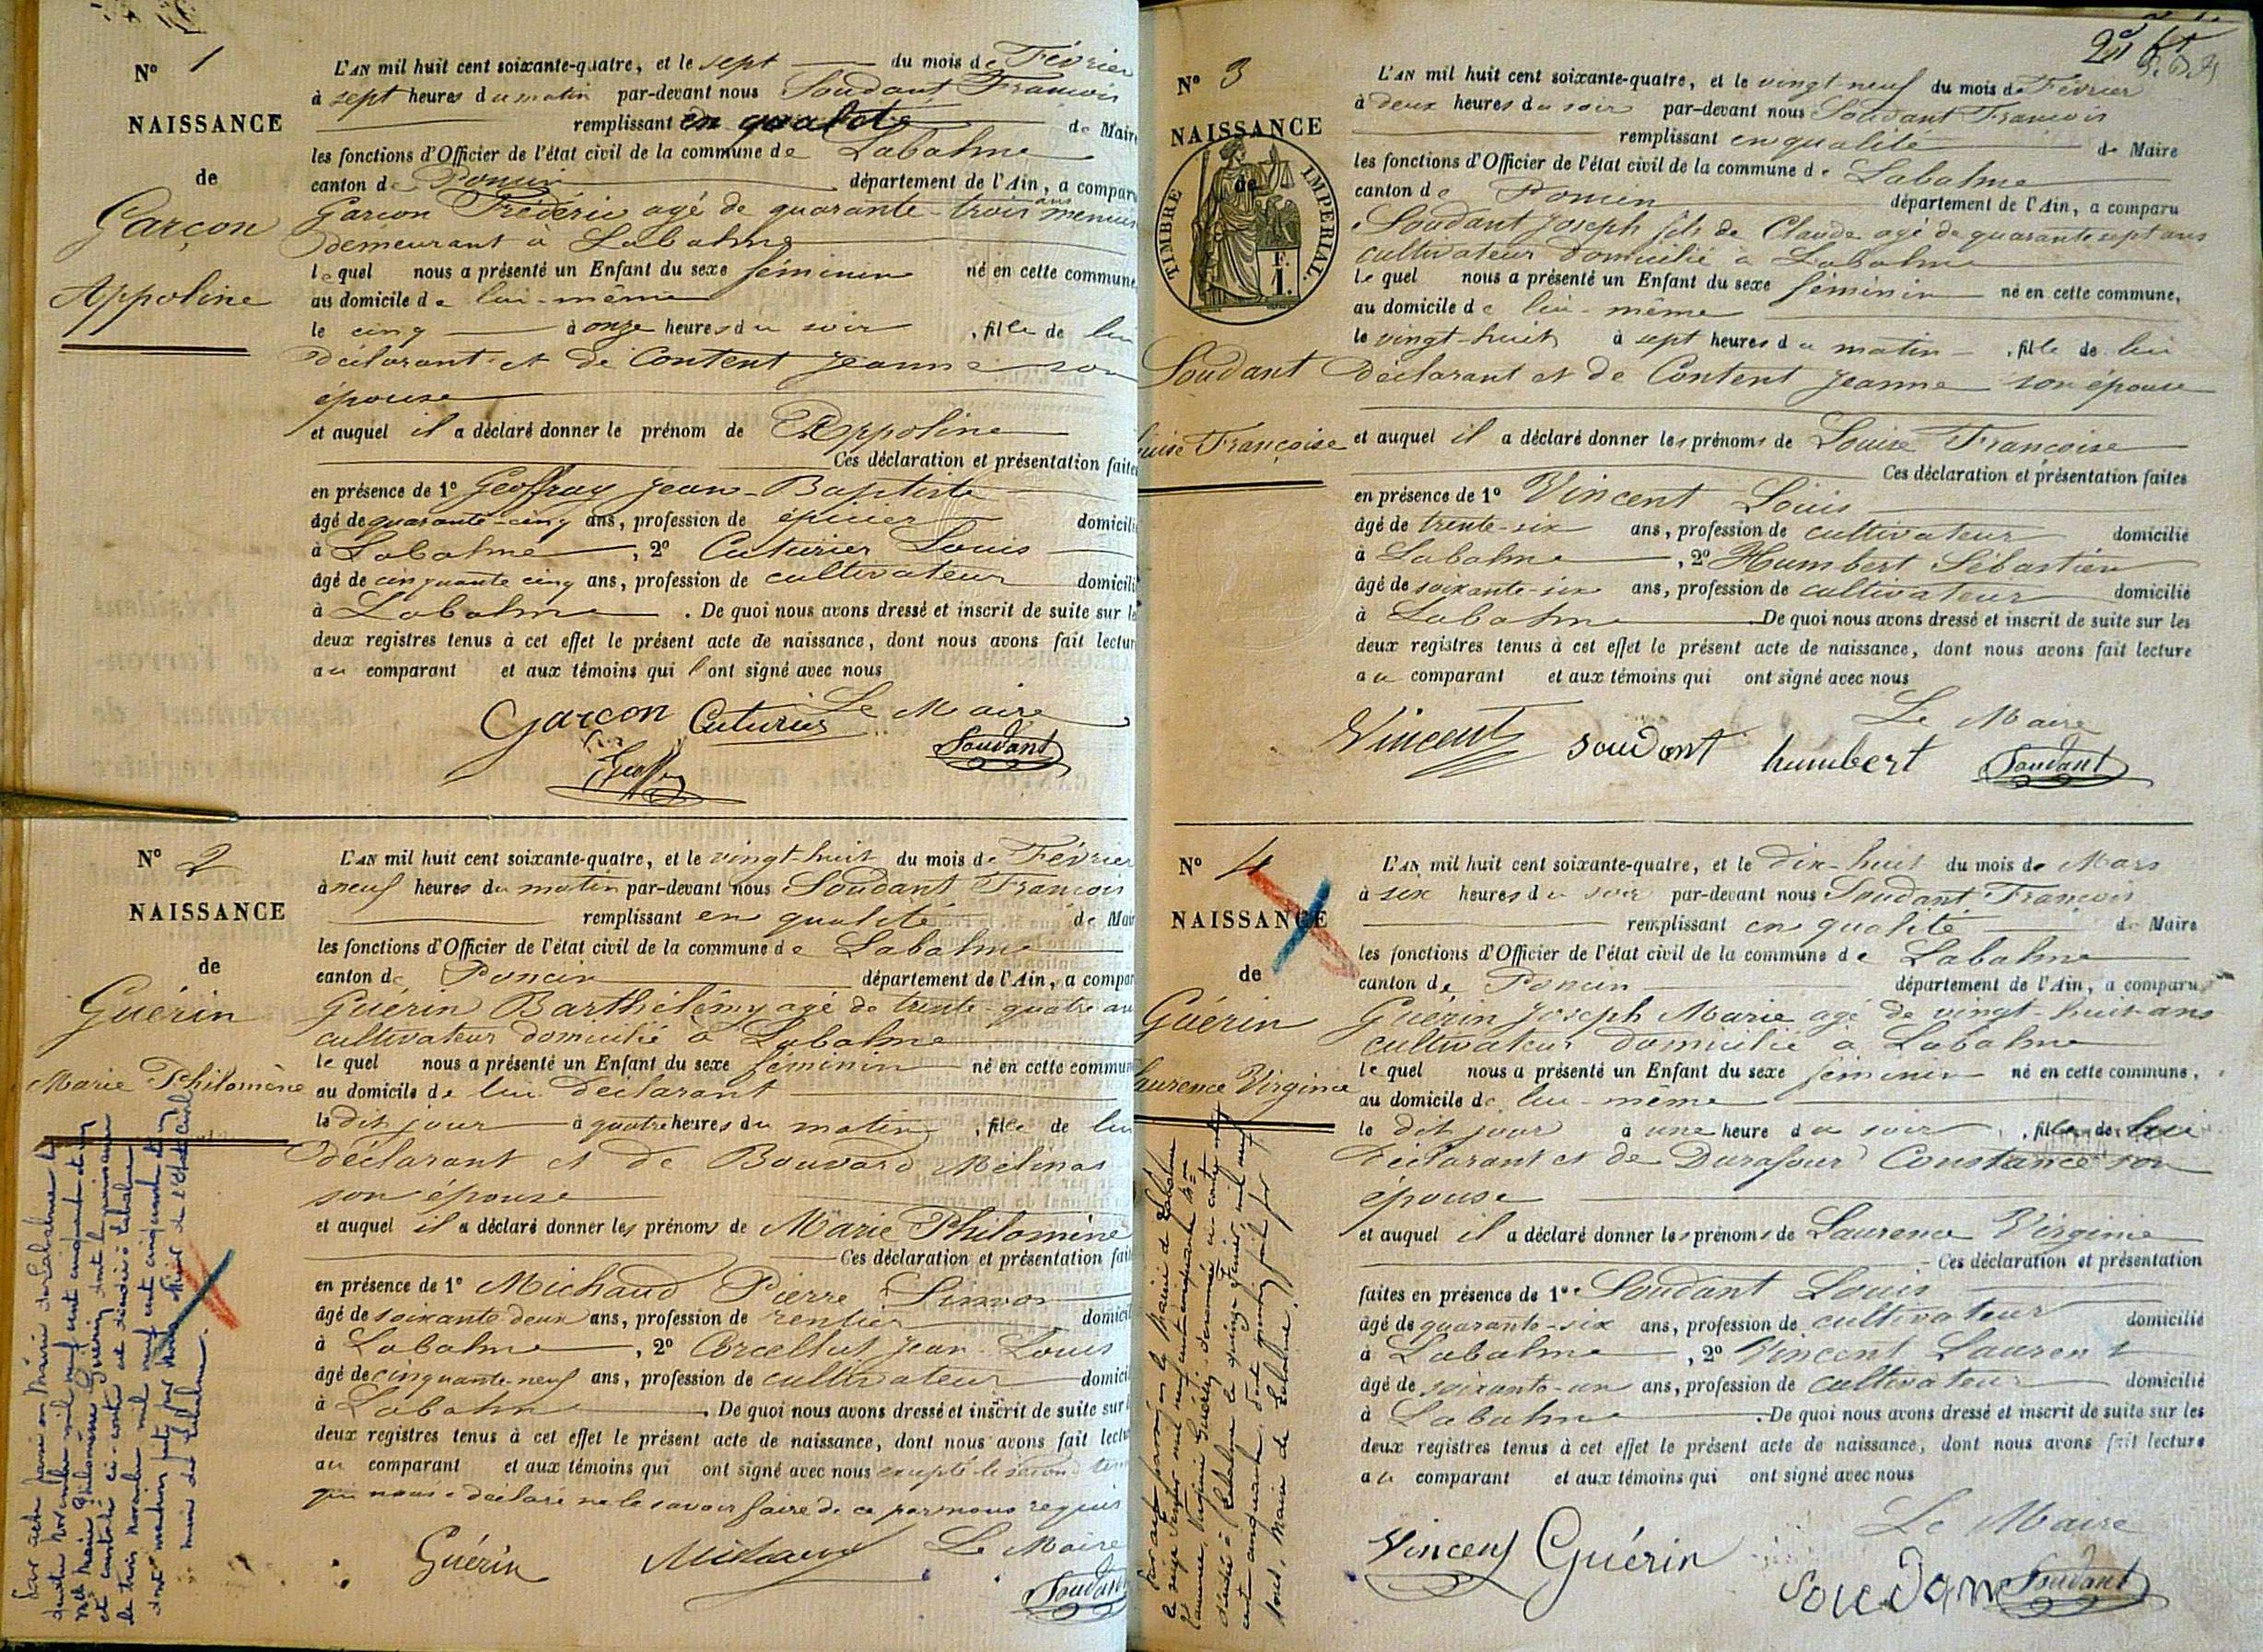 N° 1
NAISSANCE
de
Garçon
Appoline
L'AN mil huit cent soixante-quatre, et le sept du mois de Février
à sept heures du matin par-devant nous Soudant François
remplissant en qualité de Maire
les fonctions d'Officier de l'état civil de la commune de Labalme
canton de Poncin département de l'Ain, a comparu
Garçon Frédéric agé de quarante-trois ans
demeurant à Labalme
lequel nous a présenté un Enfant du sexe féminin né en cette commune
au domicile de lui-même
le cinq à onze heures du soir , fille de lui
déclarant et de Content Jeanne son
épouse
et auquel il a déclaré donner le prénom de Appoline
Ces déclaration et présentation faites
en présence de 1° Geoffray Jean-Baptiste
âgé de quarante-cinq ans, profession de épicier domicilié
à Labalme , 2° Cuturier Louis
âgé de cinquante cinq ans, profession de cultivateur domicilié
à Labalme . De quoi nous avons dressé et inscrit de suite sur les
deux registres tenus à cet effet le présent acte de naissance, dont nous avons fait lecture
au comparant et aux témoins qui l'ont signé avec nous
Garçon Cuturier Le Maire
Soudant
N° 2
NAISSANCE
de
Guérin
Marie Philomène
L'AN mil huit cent soixante-quatre, et le vingt-huit du mois de Février
à neuf heures du matin par-devant nous Soudant François
remplissant en qualité de Mair
les fonctions d'Officier de l'état civil de la commune de Labalme
canton de Poncin département de l'Ain, a compar
Guérin Barthélémy agé de trente-quatre ans
cultivateur domicilié à Labalme
le quel nous a présenté un Enfant du sexe féminin né en cette commune
au domicile de lui déclarant
le dit jour à quatre heures du matin , fille de lui
déclarant et de Bouvard Mélina
son épouse
et auquel il a déclaré donner les prénoms de Marie Philomène
Ces déclaration et présentation fait
en présence de 1° Michaud Pierre Simon
âgé de soixante deux ans, profession de rentier domicil
à Labalme , 2° Corcellut Jean-Louis
âgé de cinquante-neuf ans, profession de cultivateur domici
à Labalme . De quoi nous avons dressé et inscrit de suite sur l
deux registres tenus à cet effet le présent acte de naissance, dont nous avons fait lectu
au comparant et aux témoins qui ont signé avec nous excepté le second tem
qui nous a déclaré ne le savoir faire de ce par nous requis
Guérin Michaud Le Maire
Soudant
N° 3
NAISSANCE
de
TIMBRE IMPERIAL
F.
1.
Soudant
Louise Françoise
L'AN mil huit cent soixante-quatre, et le vingt-neuf du mois de Février
à deux heures du soir par-devant nous Soudant François
remplissant en qualité de Maire
les fonctions d'Officier de l'état civil de la commune de Labalme
canton de Poncin département de l'Ain, a comparu
Soudant Joseph fils de Claude agé de quarante sept ans
cultivateur domicilié à Labalme
le quel nous a présenté un Enfant du sexe féminin né en cette commune,
au domicile de lui-même
le vingt-huit à sept heures du matin , fille de lui
déclarant et de Content Jeanne son épouse
et auquel il a déclaré donner les prénoms de Louise Françoise
Ces déclaration et présentation faites
en présence de 1° Vincent Louis
âgé de trente-six ans, profession de cultivateur domicilié
à Labalme , 2° Humbert Sébastien
âgé de soixante-six ans, profession de cultivateur domicilié
à Labalme . De quoi nous avons dressé et inscrit de suite sur les
deux registres tenus à cet effet le présent acte de naissance, dont nous avons fait lecture
au comparant et aux témoins qui ont signé avec nous
Le Maire
Vincent soudant humbert Soudant
N° 4
NAISSANCE
de
Guérin
Laurence Virginie
L'AN mil huit cent soixante-quatre, et le dix-huit du mois de Mars
à six heures du soir par-devant nous Soudant François
remplissant en qualité de Maire
les fonctions d'Officier de l'état civil de la commune de Labalme
canton de Poncin département de l'Ain, a comparu
Guérin Joseph Marie agé de vingt-huit ans
cultivateur domicilié à Labalme
le quel nous a présenté un Enfant du sexe féminin né en cette commune,
au domicile de lui-même
le dit jour à une heure du soir , fille de lui
déclarant et de Durafour Constance son
épouse
et auquel il a déclaré donner les prénoms de Laurence Virginie
Ces déclaration et présentation
faites en présence de 1° Soudant Louis
âgé de quarante-six ans, profession de cultivateur domicilié
à Labalme , 2° Vincent Laurent
âgé de soixante-un ans, profession de cultivateur domicilié
à Labalme . De quoi nous avons dressé et inscrit de suite sur les
deux registres tenus à cet effet le présent acte de naissance, dont nous avons fait lecture
au comparant et aux témoins qui ont signé avec nous
Le Maire
Vincent Guérin Soudan Soudant